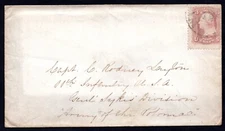 Capt. C. Rodney Layton
11th Infantry U.S.A.
Genl Sykes Division
Army of the Potomac